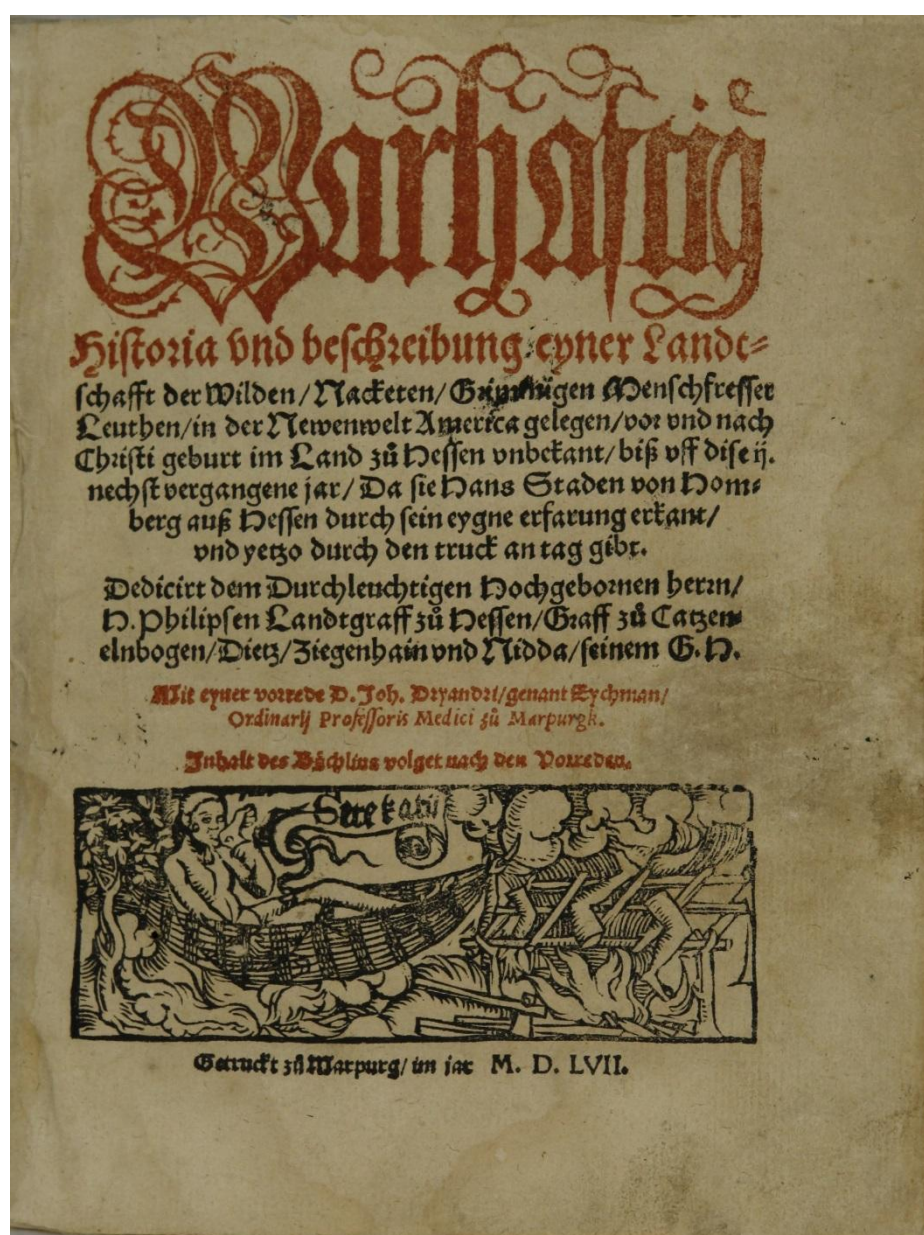 Warhaftig
Historia vnd beschreibung eyner Landt-
schafft der Wilden/Nacketen/Grimmigen Menschfresser
Leuthen/in der Newenwelt America gelegen/vor vnd nach
Christi geburt im Land zů Hessen vnbekant/biß vff dise ij.
nechst vergangene jar/Da sie Hans Staden von Hom-
berg auß Hessen durch sein eygne erfarung erkant/
vnd yetzo durch den truck an tag gibt.
Dedicirt dem Durchleuchtigen Hochgebornen herrn/
H. Philipsen Landtgraff zů Hessen/Graff zů Catzen-
elnbogen/Dietz/Ziegenhain vnd Nidda/seinem G.H.
Mit eyner vorrede D. Joh. Dryandri/genant Eychman/
Ordinarij Professoris Medici zů Marpurgk.
Inhalt des Bůchlins volget nach den Vorreden.
Setekatü
Getruckt zů Marpurg/im jar M. D. LVII.